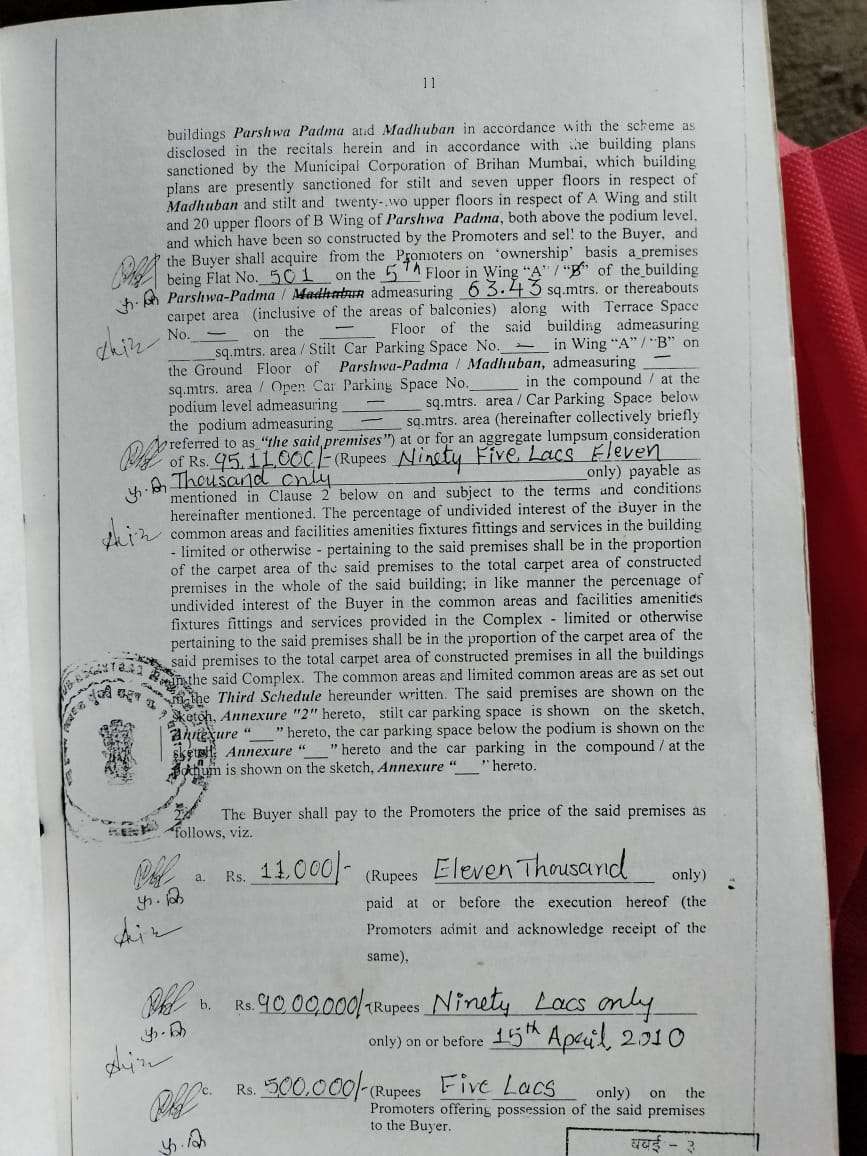 11
buildings Parshwa Padma and Madhuban in accordance with the scheme as
disclosed in the recitals herein and in accordance with the building plans
sanctioned by the Municipal Corporation of Brihan Mumbai, which building
plans are presently sanctioned for stilt and seven upper floors in respect of
Madhuban and stilt and twenty-two upper floors in respect of A Wing and stilt
and 20 upper floors of B Wing of Parshwa Padma, both above the podium level,
and which have been so constructed by the Promoters and sell to the Buyer, and
the Buyer shall acquire from the Promoters on 'ownership' basis a premises
being Flat No. 501 on the 5TH Floor in Wing "A" / "B" of the building
Parshwa-Padma / Madhuban admeasuring 63.43 sq.mtrs. or thereabouts
carpet area (inclusive of the areas of balconies) along with Terrace Space
No. — on the — Floor of the said building admeasuring
____sq.mtrs. area / Stilt Car Parking Space No. — in Wing "A" / "B" on
the Ground Floor of Parshwa-Padma / Madhuban, admeasuring —
sq.mtrs. area / Open Car Parking Space No.______ in the compound / at the
podium level admeasuring — sq.mtrs. area / Car Parking Space below
the podium admeasuring — sq.mtrs. area (hereinafter collectively briefly
referred to as "the said premises") at or for an aggregate lumpsum consideration
of Rs. 95,11,000/- (Rupees Ninety Five Lacs Eleven
Thousand only only) payable as
mentioned in Clause 2 below on and subject to the terms and conditions
hereinafter mentioned. The percentage of undivided interest of the Buyer in the
common areas and facilities amenities fixtures fittings and services in the building
- limited or otherwise - pertaining to the said premises shall be in the proportion
of the carpet area of the said premises to the total carpet area of constructed
premises in the whole of the said building; in like manner the percentage of
undivided interest of the Buyer in the common areas and facilities amenities
fixtures fittings and services provided in the Complex - limited or otherwise
pertaining to the said premises shall be in the proportion of the carpet area of the
said premises to the total carpet area of constructed premises in all the buildings
in the said Complex. The common areas and limited common areas are as set out
in the Third Schedule hereunder written. The said premises are shown on the
sketch, Annexure "2" hereto, stilt car parking space is shown on the sketch,
Annexure "___" hereto, the car parking space below the podium is shown on the
sketch, Annexure "___" hereto and the car parking in the compound / at the
podium is shown on the sketch, Annexure "___" hereto.
2. The Buyer shall pay to the Promoters the price of the said premises as
follows, viz.
a. Rs. 11,000/- (Rupees Eleven Thousand only)
paid at or before the execution hereof (the
Promoters admit and acknowledge receipt of the
same),
b. Rs. 90,00,000/- (Rupees Ninety Lacs only
only) on or before 15th April, 2010
c. Rs. 500,000/- (Rupees Five Lacs only) on the
Promoters offering possession of the said premises
to the Buyer.
बबई - ३